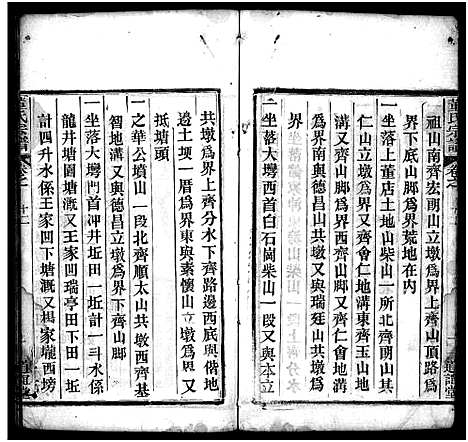 董氏宗譜
祖山南齊宏朗山立墩爲界上齊山頂路爲
界下底山脚爲界荒地在內
一坐落上董店土地山柴山一所北齊朗山其
仁山立墩爲界又齊會仁地溝東齊玉山地
溝又齊山脚爲界西齊山溝又齊仁會地溝
爲界又與德昌山共墩又與瑞廷山共墩爲
界
一坐落大塆西首白石崗柴山一段又與本立
共墩爲界上齊分水下齊路邊西底與偕地
邊土埧一厝爲界東與素懷山立墩爲界南
抵塘頭
一之華公墳山一段北齊順太山共墩西齊基
智地溝又與德昌立墩爲界下齊山脚
一坐落大塆門首冲井坵田一坵計一斗水係
龍井塘園塘溉又王家凹瑞亭田下田一坵
計四升水係王家凹下塘溉又楊家壠西塝